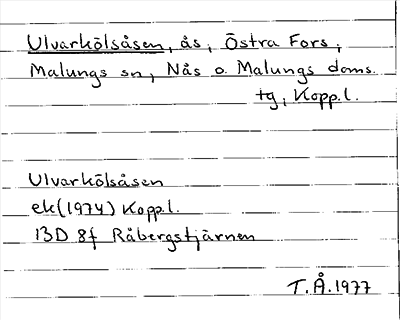 Ulvarkölsåsen, ås, Östra Fors,
Malungs sn, Nås o. Malungs doms.
tg, Kopp.l.
Ulvarkölsåsen
ek(1974) Kopp.l.
13D 8f Råbergstjärnen
T.Å.1977